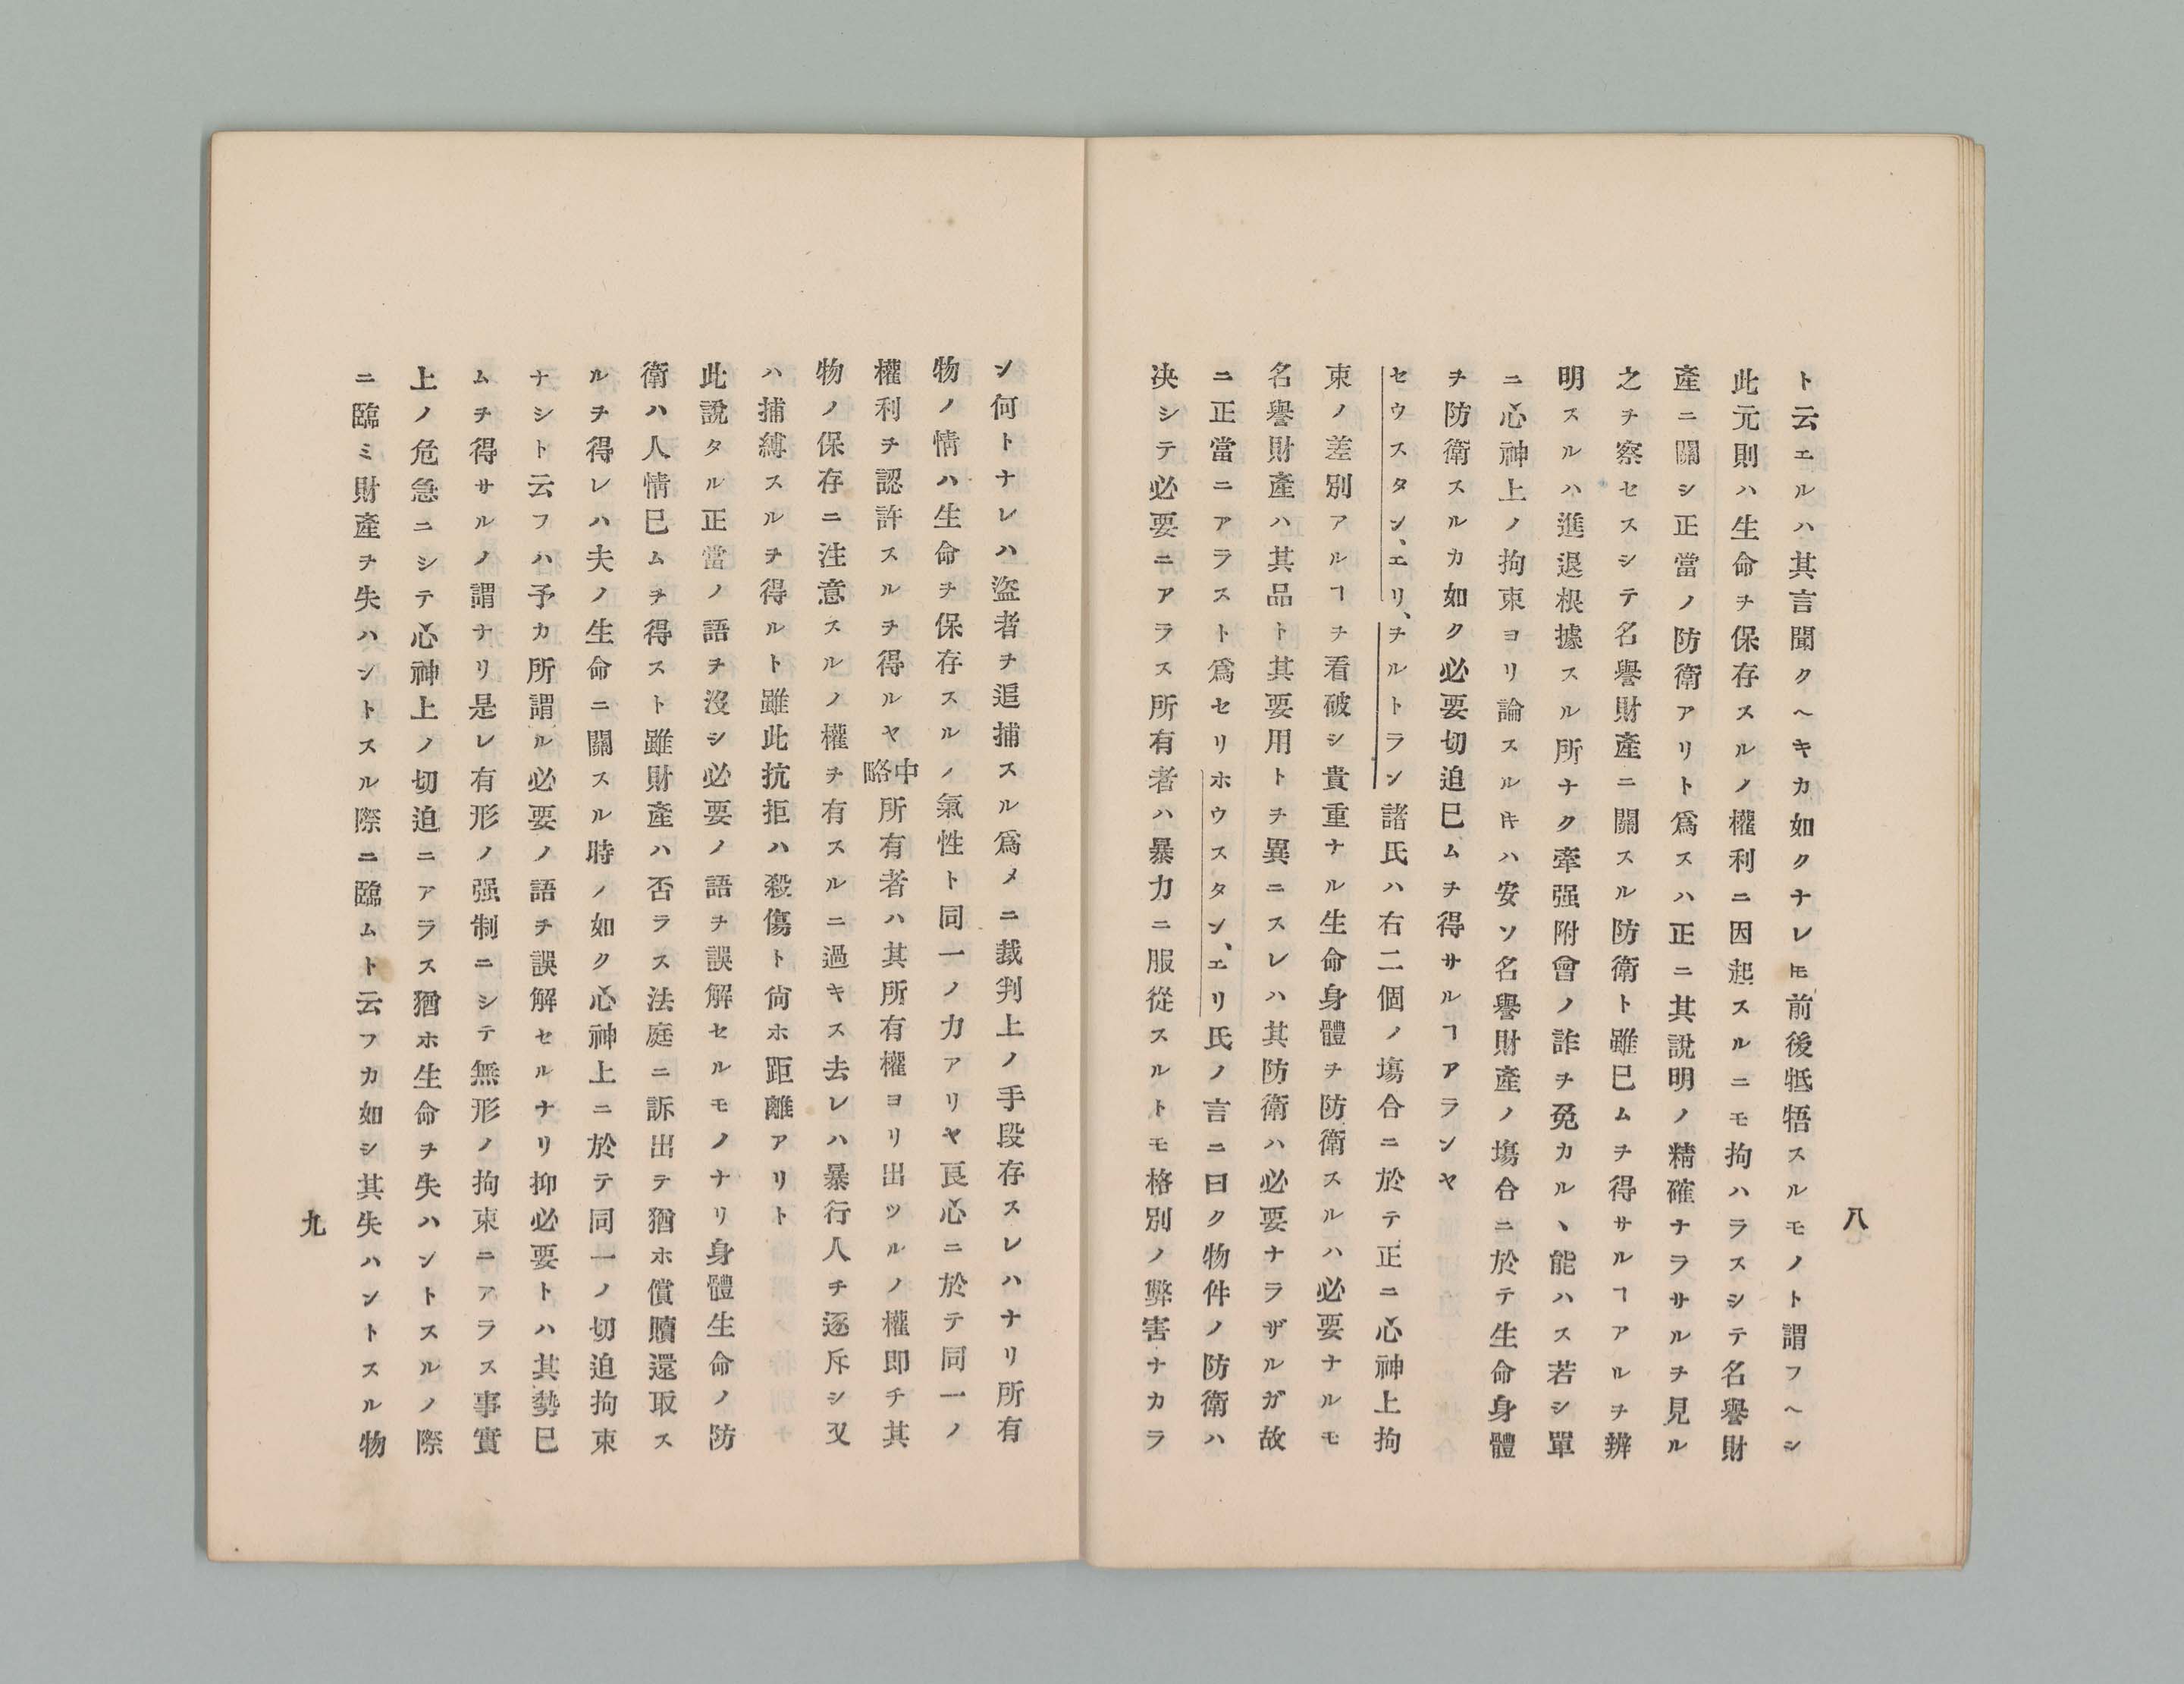 八
ト云エルハ其言聞クヘキカ如クナレ𪜈前後牴牾スルモノト謂フヘシ
此元則ハ生命ヲ保存スルノ權利ニ因起スルニモ拘ハラスシテ名譽財
產ニ關シ正當ノ防衛アリト爲スハ正ニ其說明ノ精確ナラサルヲ見ル
之ヲ察セスシテ名譽財產ニ關スル防衛ト雖已ムヲ得サルヿアルヲ辨
明スルハ進退根據スル所ナク牽强附會ノ詐ヲ免カルヽ能ハス若シ單
ニ心神上ノ拘束ヨリ論スルキハ安ソ名譽財產ノ塲合ニ於テ生命身體
ヲ防衛スルカ如ク必要切迫已ムヲ得サルヿアランヤ
セウスタン、エリ、ヲルトラン諸氏ハ右二個ノ塲合ニ於テ正ニ心神上拘
束ノ差別アルヿヲ看破シ貴重ナル生命身體ヲ防衛スルハ必要ナルモ
名譽財產ハ其品ト其要用トヲ異ニスレハ其防衛ハ必要ナラザルガ故
ニ正當ニアラスト爲セリホウスタン、エリ氏ノ言ニ曰ク物件ノ防衛ハ
决シテ必要ニアラス所有者ハ暴力ニ服從スルトモ格別ノ弊害ナカラ
ン何トナレハ盜者ヲ追捕スル爲メニ裁判上ノ手段存スレハナリ所有
物ノ情ハ生命ヲ保存スルノ氣性ト同一ノ力アリヤ良心ニ於テ同一ノ
權利ヲ認許スルヲ得ルヤ中略所有者ハ其所有權ヨリ出ツルノ權即チ其
物ノ保存ニ注意スルノ權ヲ有スルニ過キス去レハ暴行人ヲ逐斥シ又
ハ捕縛スルヲ得ルト雖此抗拒ハ殺傷ト尙ホ距離アリト
此說タル正當ノ語ヲ沒シ必要ノ語ヲ誤解セルモノナリ身體生命ノ防
衛ハ人情已ムヲ得スト雖財產ハ否ラス法庭ニ訴出テ猶ホ償贖還取ス
ルヲ得レハ夫ノ生命ニ關スル時ノ如ク心神上ニ於テ同一ノ切迫拘束
ナシト云フハ予カ所謂ル必要ノ語ヲ誤解セルナリ抑必要トハ其勢已
ムヲ得サルノ謂ナリ是レ有形ノ强制ニシテ無形ノ拘束ニアラス事實
上ノ危急ニシテ心神上ノ切迫ニアラス猶ホ生命ヲ失ハントスルノ際
ニ臨ミ財產ヲ失ハントスル際ニ臨ムト云フカ如シ其失ハントスル物
九